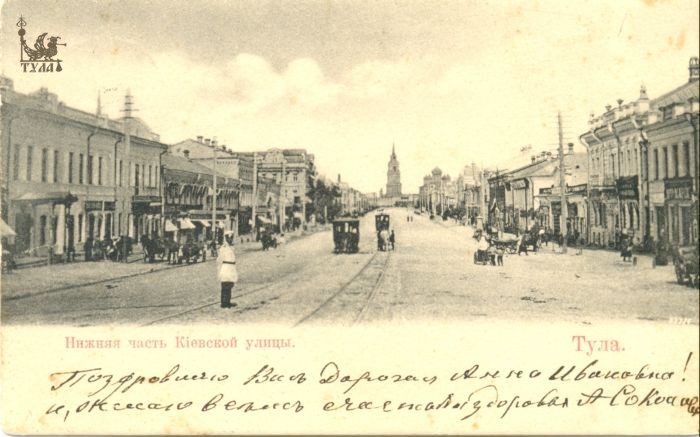 ТУЛА
Нижняя часть Кіевской улицы.
Тула.
Поздровляю Васъ Дорогая Анна Ивановна!
и, желаю всемъ счастья и здоровья А